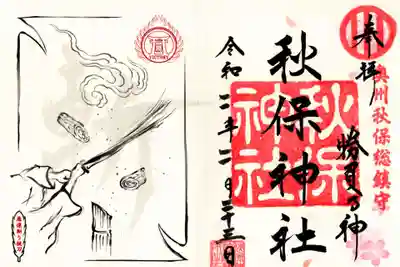 奉拝
奥州秋保総鎮守
勝負乃神
秋保神社
秋保神社
令和二年二月二十三日
VICTORY